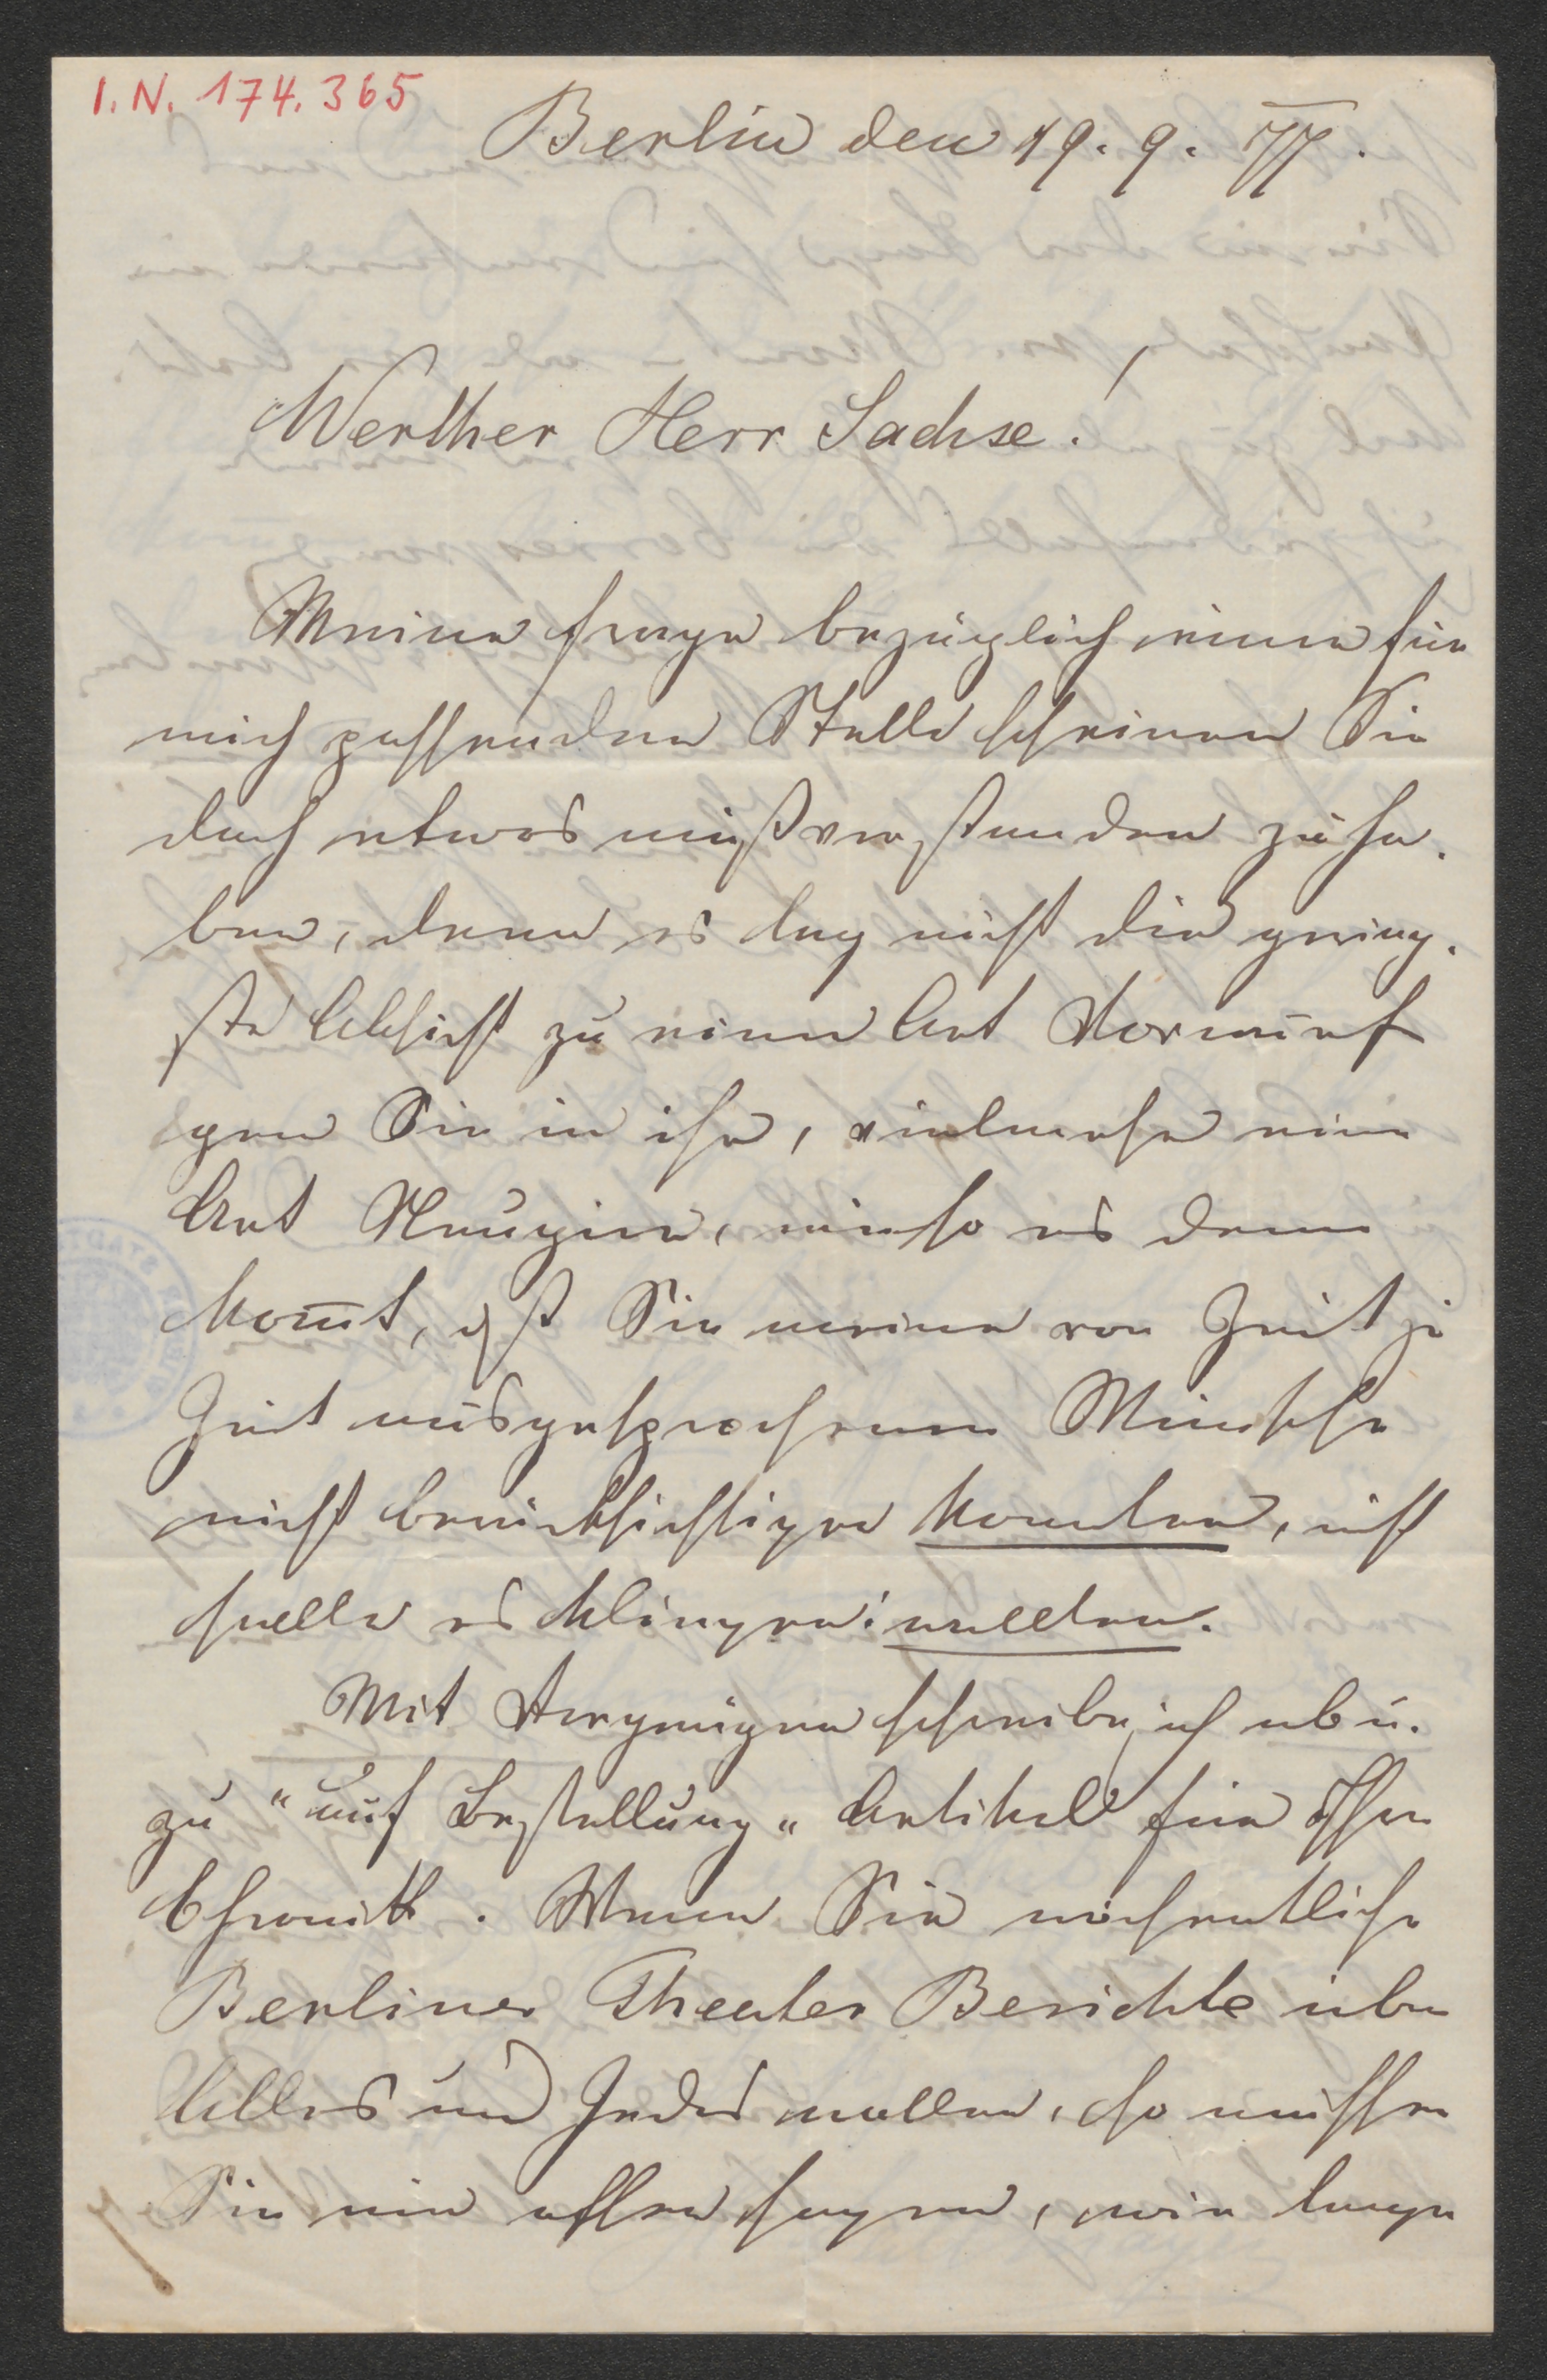 I. N. 174.365
Berlin den 19. 9. 77.
Werther Herr Sachse!
Meine Frage bezüglich einer für
mich passenden Stelle scheinen Sie
doch etwas mißverstanden zu ha-
ben, denn es lag nicht die gering-
ste Absicht zu einer Art Vorwurf
gen Sie in ihr, vielmehr eine
Art Neugier, wieso es denn
kom̅t, dß Sie meine von Zeit zu
Zeit ausgesprochenen Wünsche
nicht berücksichtigen konnten, nicht
wollten.
Mit Vergnügen schreibe ich ab u.
zu "auf Bestellung" Artikel für Ihre
Chronik. Wenn Sie wöchentliche
Berliner Theater Berichte über
Alles und Jedes wollen, so müssen
Sie mir offen sagen, wie lange